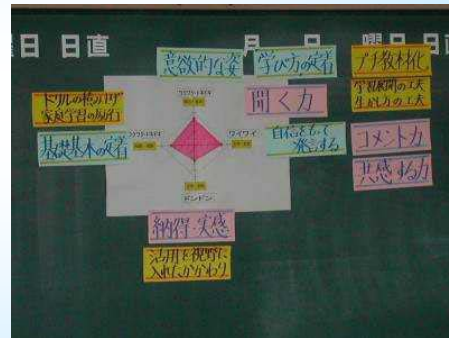 曜日 日直 月 日 曜日 日直
意欲的な姿 学び方の定着 プチ教材化
学習展開の工夫
生かし方の工夫
聞く力
家庭学習の励行
基礎基本の定着 ワイワイ 自信をもって
発言する コメント力
共感する力
ドンドン
納得・実感
活用を視野に
入れたかかわり